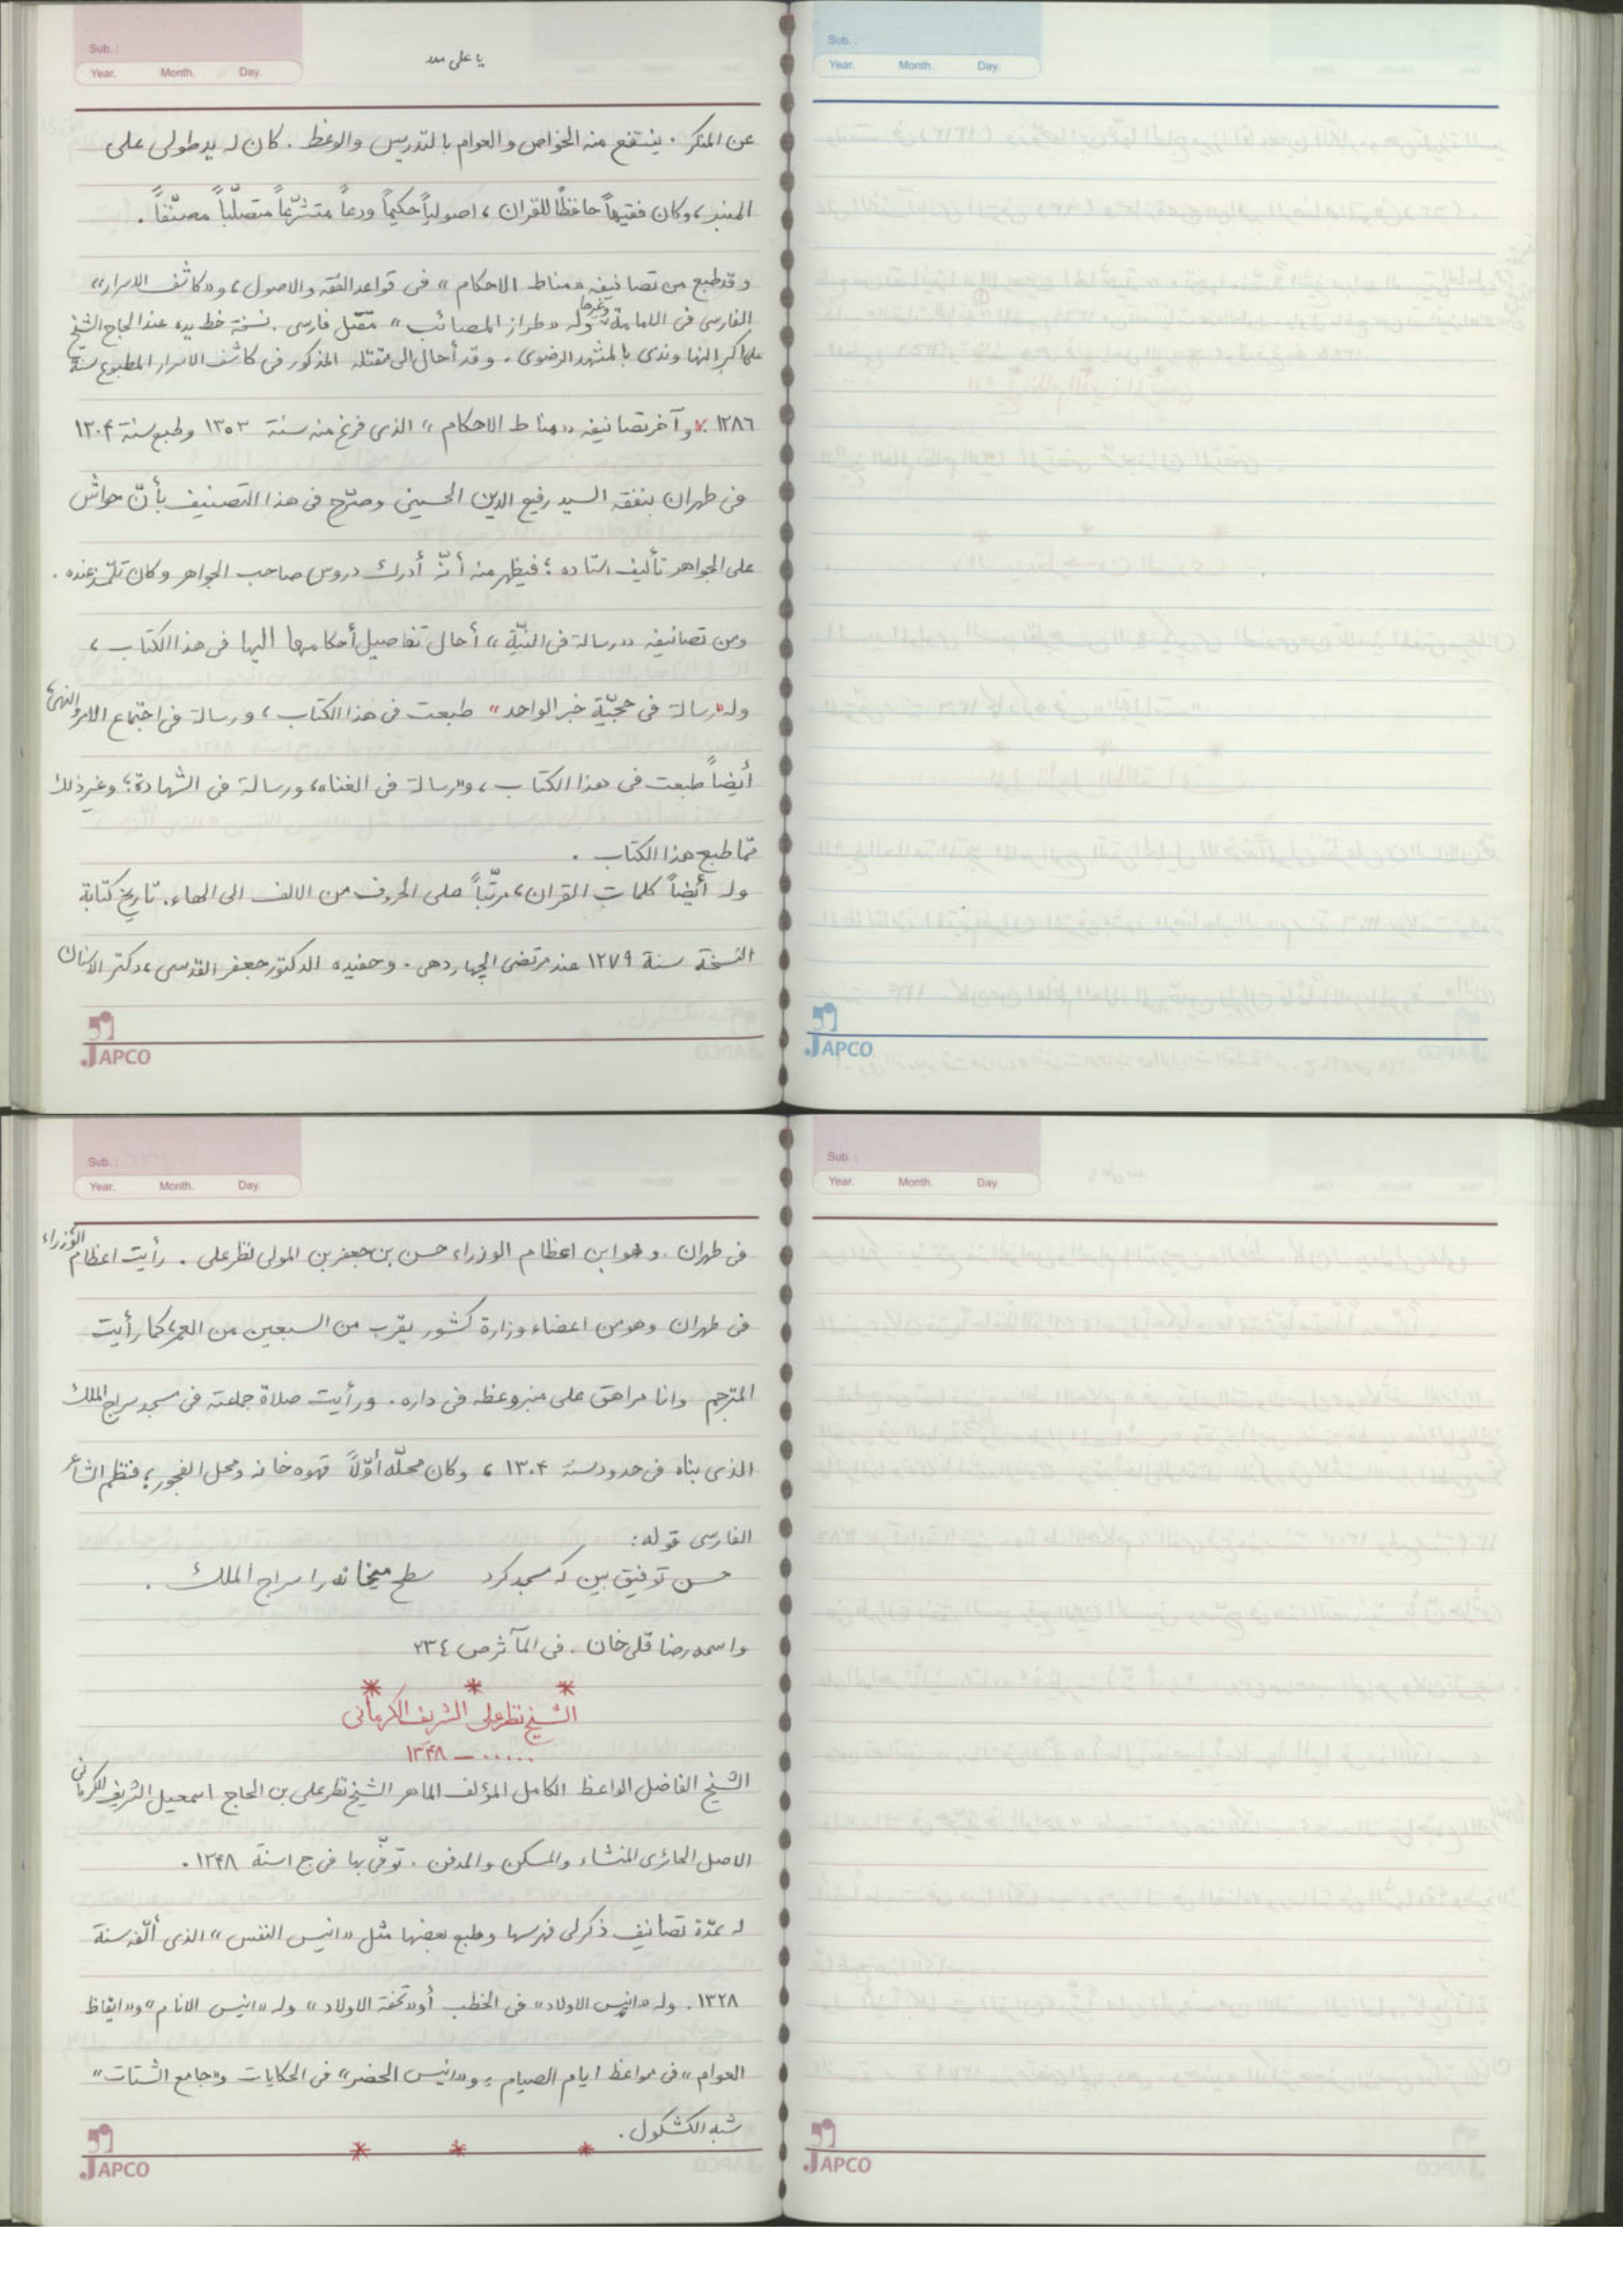 Sub. :
Year. Month. Day.
يا على مدد
عن المنكر . ينتفع منه الخواص والعوام بالتدريس والوعظ . كان له يد طولى على
المنبر، وكان فقيهاً حافظاً للقران، اصولياً حكيماً ورعاً متشرّعاً متصلّباً مصنّفاً .
وقد طبع من تصانيفه «مناط الاحكام» فى قواعد الفقه والاصول، و«كاشف الاسرار»
الفارسى فى الامامة وغيرها وله «طراز المصائب» مقتل فارسى . نسخة خط يده عند الحاج الشيخ
على اكبر النهاوندى بالمشهد الرضوى . وقد أحال الى مقتله المذكور فى كاشف الاسرار المطبوع سنة
١٢٨٦ . وآخر تصانيفه «مناط الاحكام» الذى فرغ منه سنة ١٣٠٣ وطبع سنة ١٣٠۴
فى طهران بنفقة السيد رفيع الدين الحسينى وصرّح فى هذا التصنيف بأنّ حواش
على الجواهر تأليف استاده ؛ فيظهر منه أنّه أدرك دروس صاحب الجواهر وكان تلمّذ عنده .
ومن تصانيفه «رسالة فى النيّة» أحال تفاصيل أحكامها اليها فى هذا الكتاب ،
وله «رسالة فى حجيّة خبر الواحد» طبعت فى هذا الكتاب، ورسالة فى اجتماع الامر والنهى
أيضاً طبعت فى هذا الكتاب، و«رسالة فى الغناء» ورسالة فى الشهادة؛ وغير ذلك
ممّا طبع هذا الكتاب .
وله أيضاً كلمات القران، مرتّباً على الحروف من الالف الى الهاء. تاريخ كتابة
النسخة سنة ١٢٧٩ عند مرتضى الچهاردهى . وحفيده الدكتور جعفر القدسى، دكتر الاسنان
JAPCO
Sub. :
Year. Month. Day.
JAPCO
Sub. :
Year. Month. Day.
فى طهران . وهو ابن اعظام الوزراء حسن بن جعفر بن المولى نظر على . رأيت اعظام الوزراء
فى طهران وهو من اعضاء وزارة كشور يقرب من السبعين من العمر، كما رأيت
المترجم وانا مراهق على منبر وعظه فى داره . ورأيت صلاة جماعته فى مسجد سراج الملك
الذى بناه فى حدود سنة ١٣٠۴ ، وكان محلّه أوّلاً قهوه خانه ومحل الفجور؛ فنظم الشاعر
الفارسى قوله:
حسن توفيق بين كه مسجد كرد سطح ميخانه را سراج الملك .
واسمه رضا قلى خان . فى المآثر ص ٢٣٤
* * *
الشيخ نظر على الشريف الكرمانى
..... – ١٣۴٨
الشيخ الفاضل الواعظ الكامل المؤلف الماهر الشيخ نظر على بن الحاج اسمعيل الشريف الكرمانى
الاصل الحائرى المنشاء والمسكن والمدفن . توفّى بها فى ج١ سنة ١٣۴٨ .
له عدّة تصانيف ذكر لى فهرسها وطبع بعضها مثل «انيس النفس» الذى ألّفه سنة
١٣٢٨ . وله «انيس الاولاد» فى الخطب أو «تحفة الاولاد» وله «انيس الانام» و«ايقاظ
العوام» فى مواعظ ايام الصيام ؛ و«انيس الحضر» فى الحكايات و«جامع الشتات»
شبه الكشكول .
* * *
JAPCO
Sub. :
Year. Month. Day
JAPCO